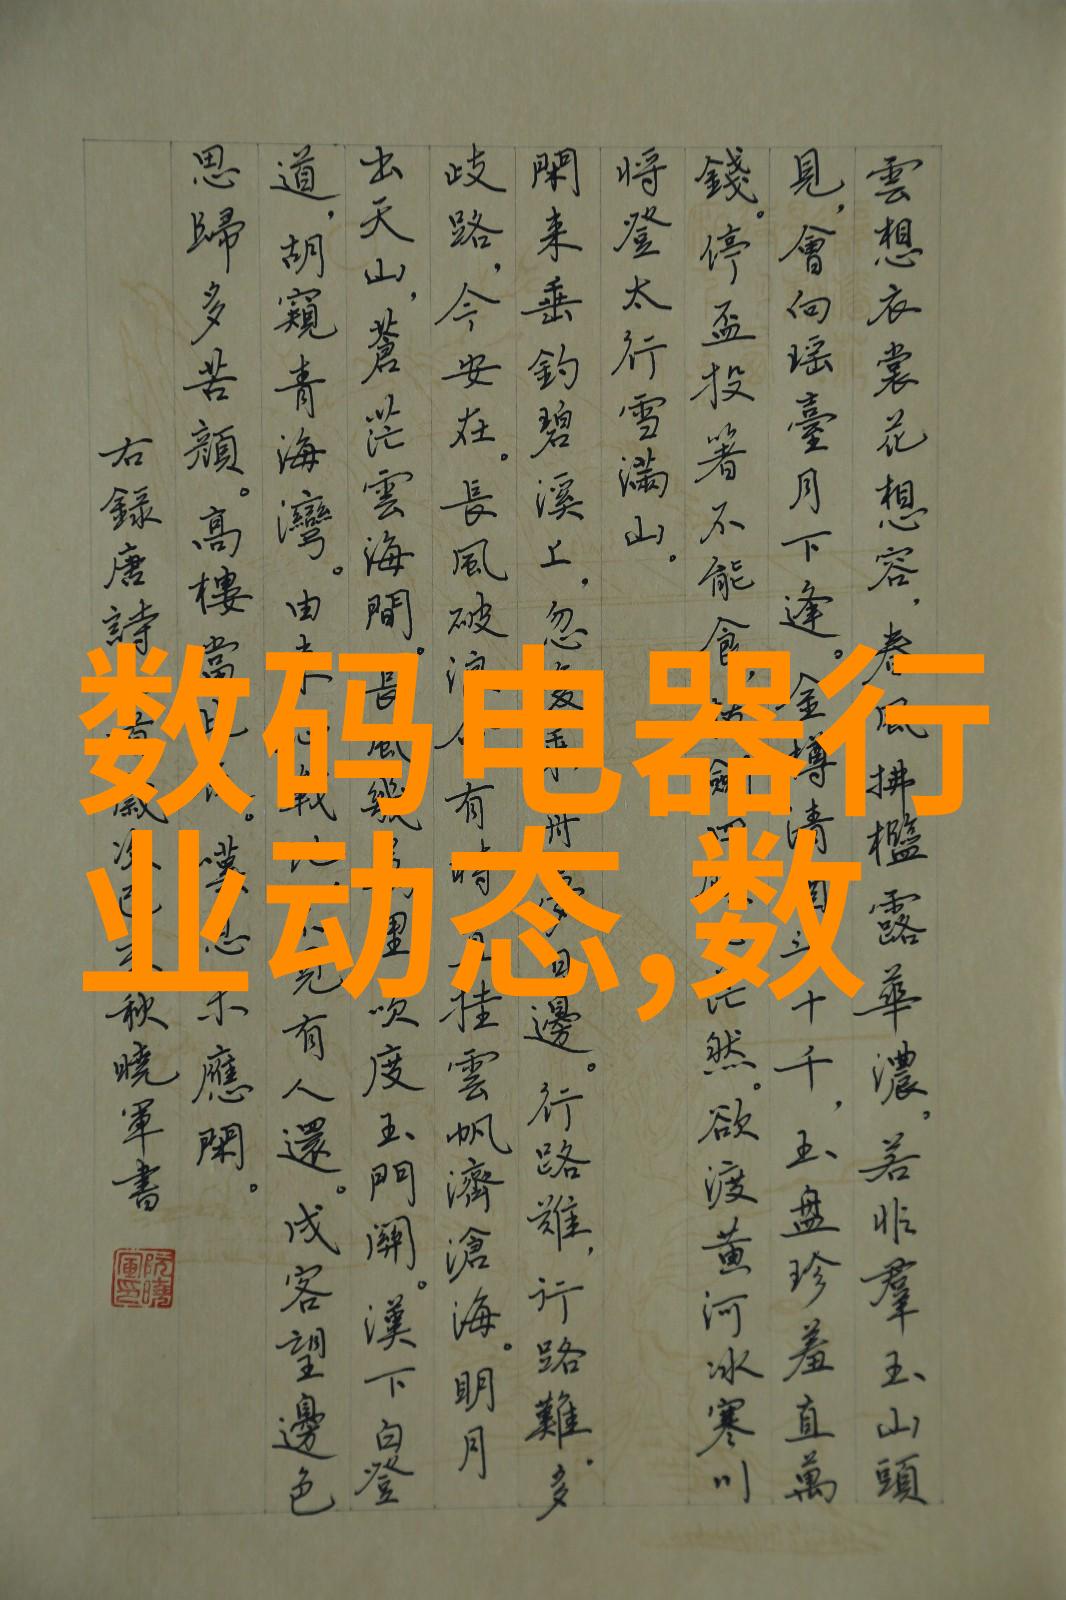 雲想衣裳花想容，春風拂檻露華濃。若非羣玉山頭
見，會向瑶臺月下逢。金樽清十千，玉盘珍羞直萬
錢。停盃投箸不能食，劍四茫然。欲渡黄河冰寒川
将登太行雪滿山。
閑来垂釣碧溪上，忽復乘舟夢日邊。行路難，行路難。多
歧路，今安在。長風破浪有時挂雲帆濟滄海。明月
出天山，蒼茫雲海間。長風幾里吹度玉門關。漢下白登
道，胡窺青海灣。由来戰地見有人還。戍客望邊色
思歸多苦顔。高樓當此。嘆息未應閑。
右録唐詩歲次己亥秋曉軍書
阮曉軍印
数码电器行
业动态,数